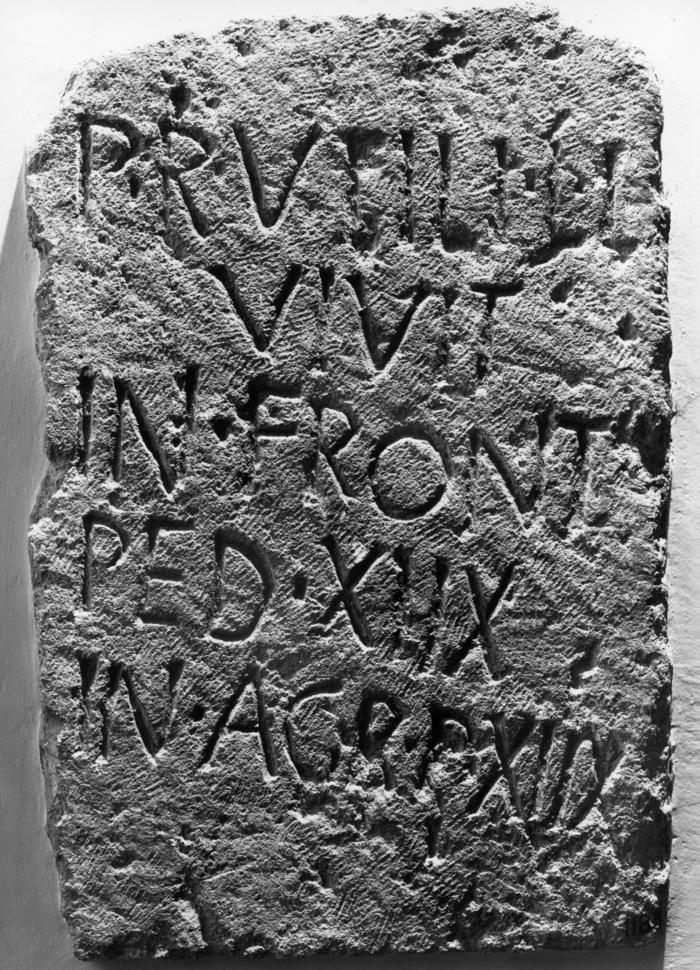 P·RVTILI
VIVIT
IN·FRONT
PED·XIIX
IN·AGR·P·XIIX